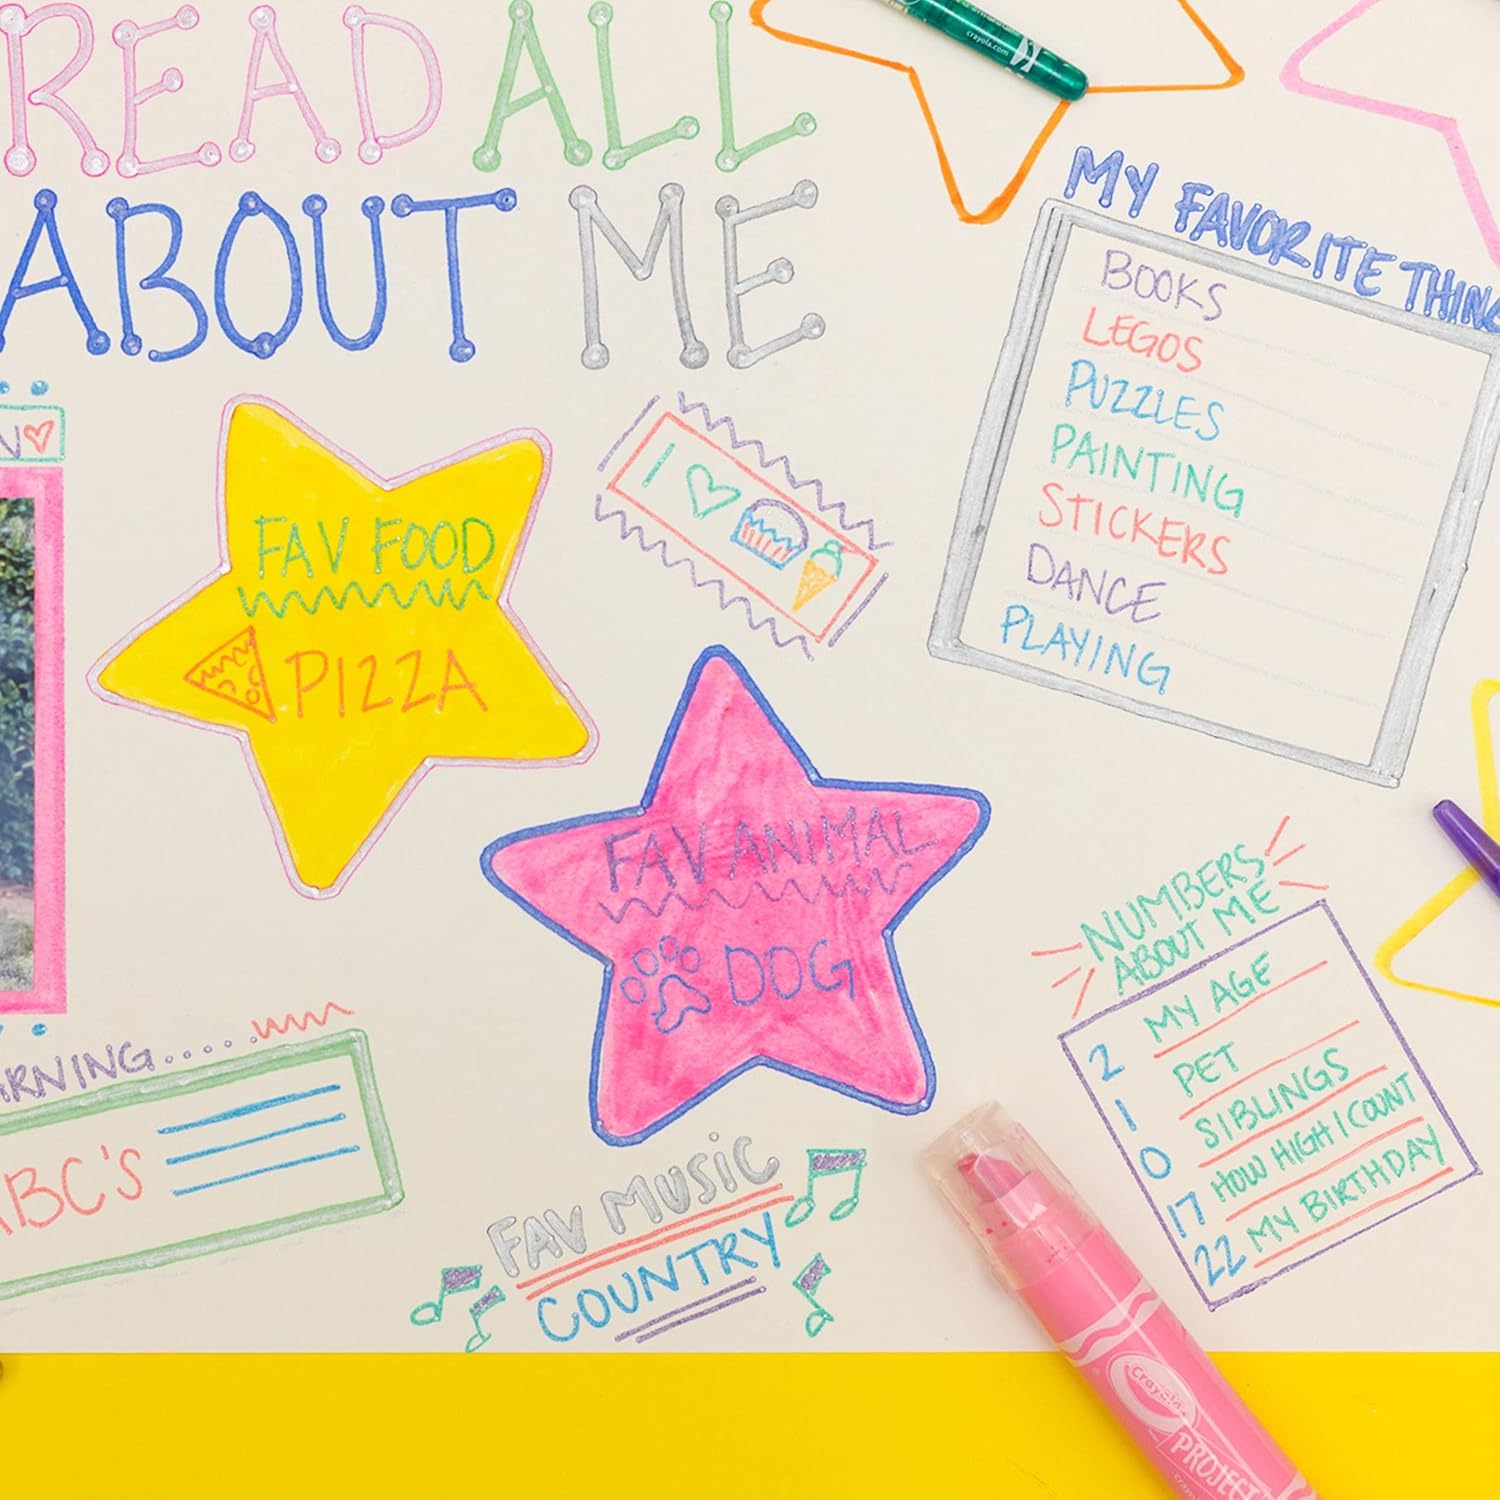 READ ALL
ABOUT ME
crayola.com
MY FAVORITE THINGS
BOOKS
LEGOS
PUZZLES
PAINTING
STICKERS
DANCE
PLAYING
I
FAV FOOD
PIZZA
FAV ANIMAL
DOG
ABC'S
FAV MUSIC
COUNTRY
NUMBERS
ABOUT ME
2 MY AGE
1 PET
0 SIBLINGS
17 HOW HIGH I COUNT
22 MY BIRTHDAY
Crayola
PROJECT